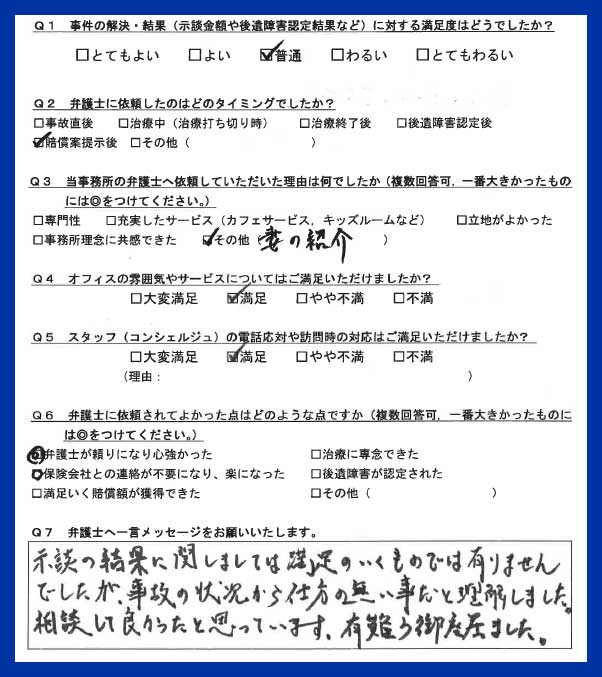 Q1 事件の解決・結果(示談金額や後遺障害認定結果など)に対する満足度はどうでしたか?
□とてもよい □よい ☑普通 □わるい □とてもわるい
Q2 弁護士に依頼したのはどのタイミングでしたか?
□事故直後 □治療中(治療打ち切り時) □治療終了後 □後遺障害認定後
☑賠償案提示後 □その他( )
Q3 当事務所の弁護士へ依頼していただいた理由は何でしたか(複数回答可,一番大きかったもの
には◎をつけてください。)
□専門性 □充実したサービス(カフェサービス,キッズルームなど) □立地がよかった
□事務所理念に共感できた ☑その他(妻の紹介 )
Q4 オフィスの雰囲気やサービスについてはご満足いただけましたか?
□大変満足 ☑満足 □やや不満 □不満
Q5 スタッフ(コンシェルジュ)の電話応対や訪問時の対応はご満足いただけましたか?
□大変満足 ☑満足 □やや不満 □不満
(理由: )
Q6 弁護士に依頼されてよかった点はどのような点ですか(複数回答可,一番大きかったものに
は◎をつけてください。)
◎弁護士が頼りになり心強かった □治療に専念できた
○保険会社との連絡が不要になり、楽になった □後遺障害が認定された
□満足いく賠償額が獲得できた □その他( )
Q7 弁護士へ一言メッセージをお願いいたします。
示談の結果に関しましては満足のいくものでは有りません
でしたが、事故の状況から仕方の無い事だと理解しました。
相談して良かったと思っています、有難う御座居ました。